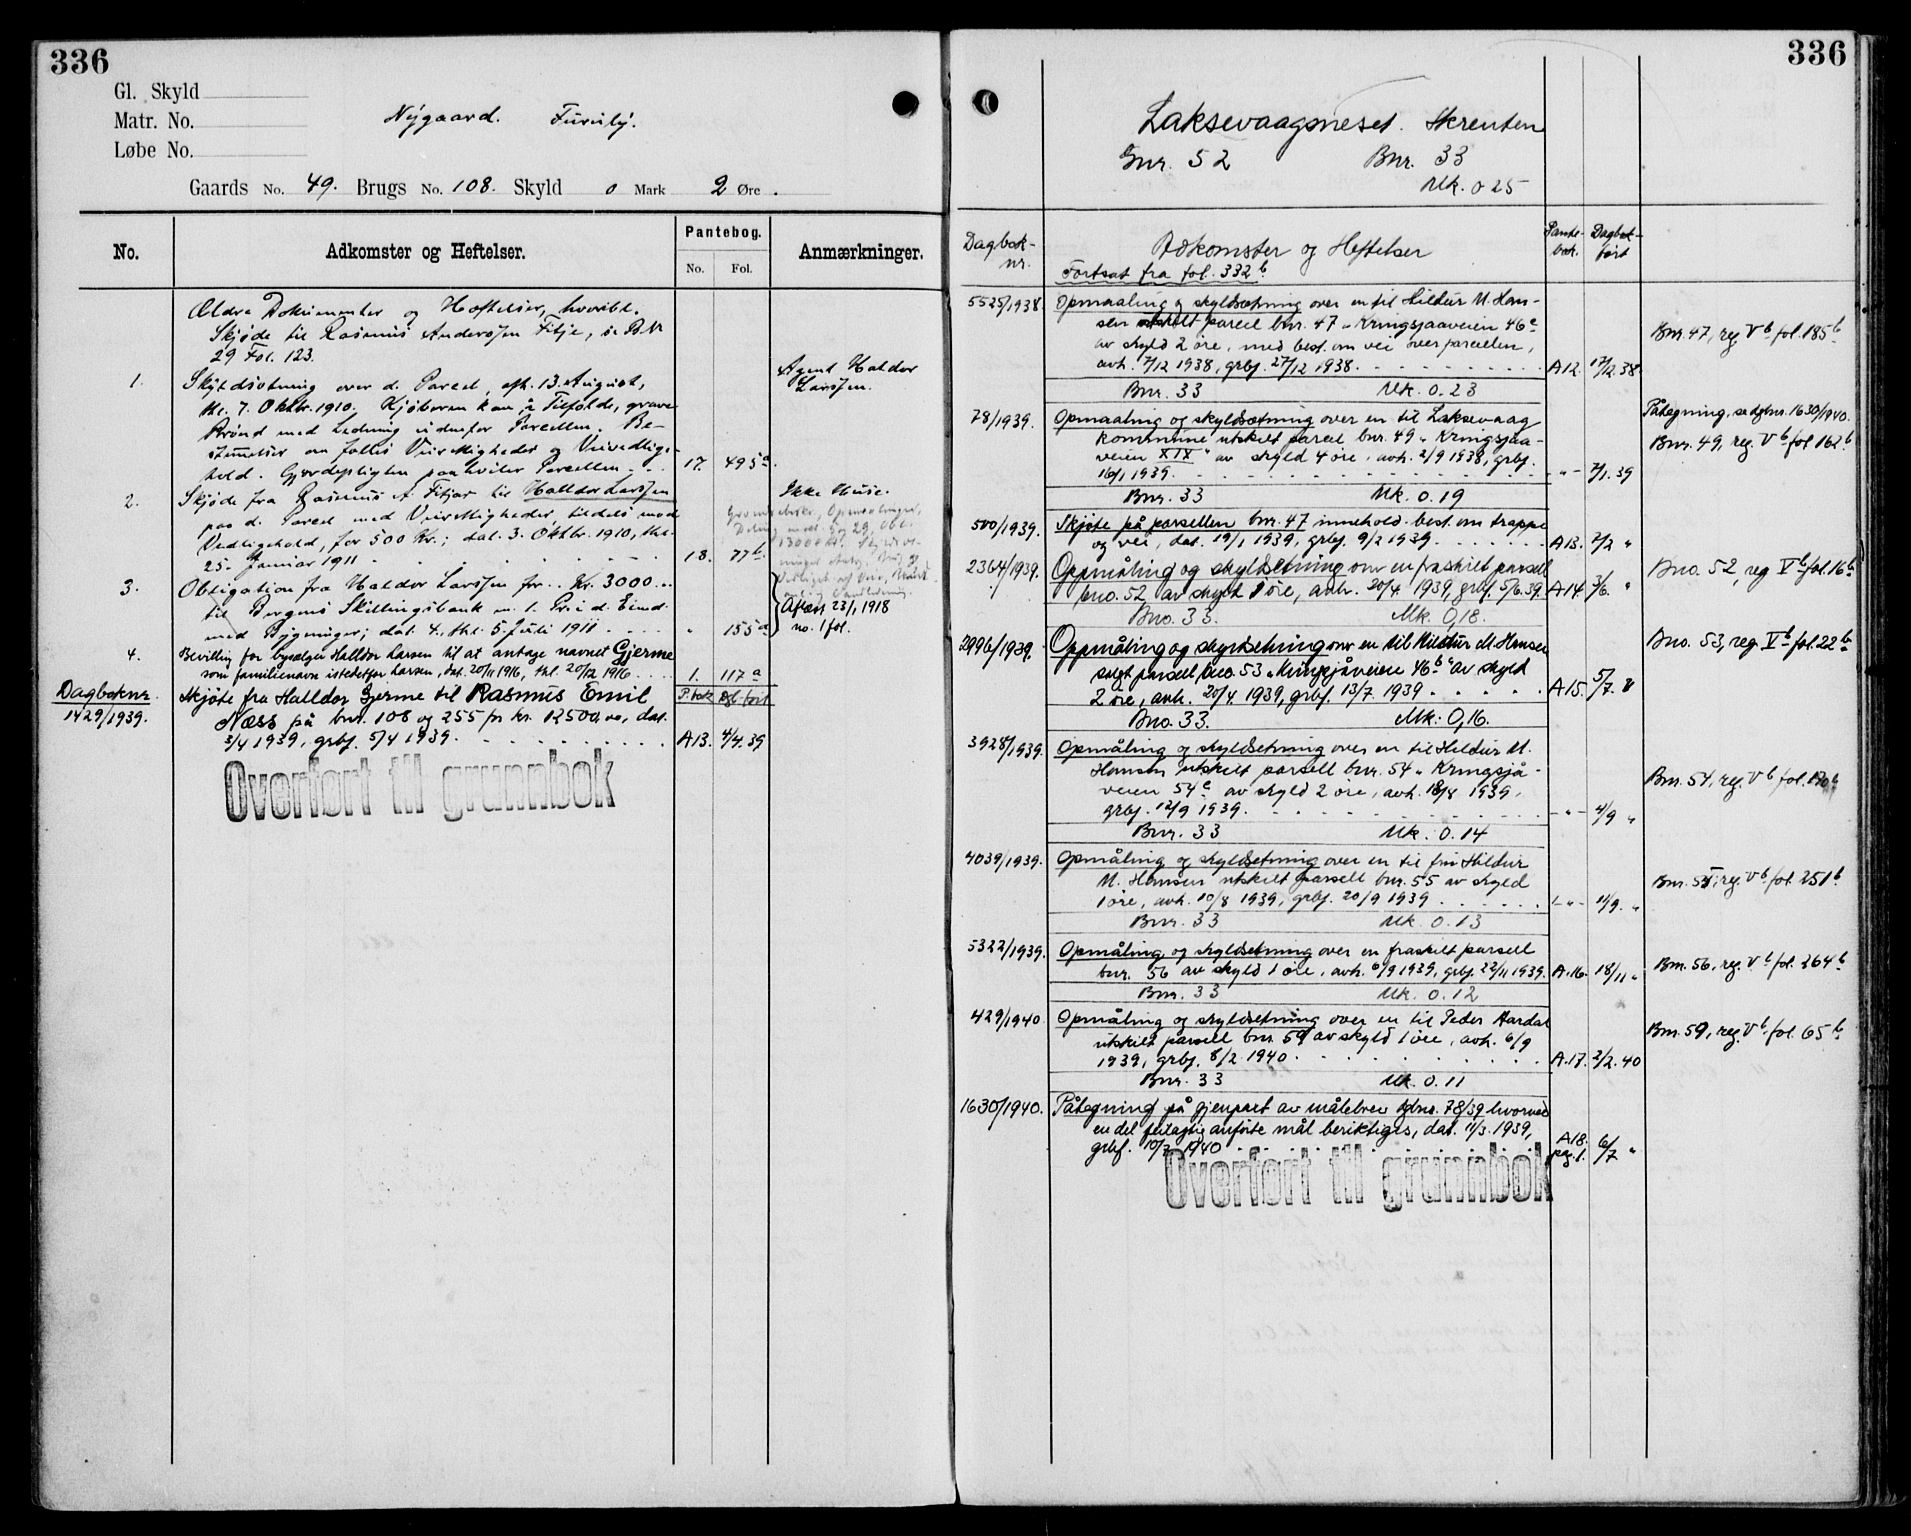 336
Gl. Skyld
Matr. No.
Løbe No.
Nygaard. Furuly.
Gaards No. 49. Brugs No. 108. Skyld 0 Mark 2 Øre.
No.
Adkomster og Heftelser.
Pantebog.
No. Fol.
Anmærkninger.
Ældre Dokumenter og Heftelser, hvoribl.
Skjøde til Rasmus Andersen Fitje, se B.Nr
29 Fol. 123.
1. Skyldsætning over d. Parcel, afh. 13. August,
thl. 7. Oktbr. 1910. Kjøberen kan i Tilfælde, grave
Brønd med Ledning udenfor Parcellen. Be-
stemmelser om fælles Veirettigheder og Veivedlige-
hold. Gjerdepligten paahviler Parcellen 17. 495a.
Agent Haldor
Larssen.
2. Skjøde fra Rasmus A. Fitjar til Halldor Larssen
paa d. Parcel med Veirettigheder, tildels mod
Vedligehold, for 500 Kr.; dat. 3. Oktbr. 1910, thl.
25. Januar 1911 18. 77b.
Ikke Huse.
3. Obligation fra Haldor Larssen for Kr. 3000
til Bergens Skillingsbank m. 1. Pri. i d. Eiend.
med Bygninger; dat. 4., thl. 5. Juli 1911 " 155a
Aflæst 23/1 1918
no. 1 fol.
4. Bevilling for bysælger Halldor Larsen til at antage navnet Gjerme
som familienavn istedetfor Larsen, dat. 20/11 1916, thl. 20/12 1916 1. 117a
Dagboknr.
1429/1939.
P.bok Dgb.ført
Skjøte fra Halldor Gjerme til Rasmus Emil
Næss på bnr. 108 og 255 for kr. 12500,00, dat.
3/4 1939, grbf. 5/4 1939. A13. 4/4.39
Overført til grunnbok
336
Laksevaagsneset. Skrenten
Gnr. 52 Bnr. 33
Mk. 0 25
Dagbok-
nr.
Adkomster og Heftelser
Pante-
bok.
Dagbok-
ført
Fortsat fra fol. 332b.
5525/1938. Opmaaling og skyldsætning over en til Hildur M. Han-
sen utskilt parcel bnr. 47 "Kringsjaaveien 46c
av skyld 2 øre, med best. om vei over parcellen,
avh. 7/12 1938, grbf. 27/12 1938. A12. 17/12.38
Bnr. 47, reg. Vb fol. 185b
Bnr. 33 Mk. 0.23
78/1939. Opmaaling og skyldsætning over en til Laksevaag
kommune utskilt parcel bnr. 49 "Kringsjaa-
veien XIX" av skyld 4 øre, avh. 2/9 1938, grbf.
16/1 1939. - " - 7/1.39
Påtegning, se dgbnr. 1630/1940.
Bnr. 49, reg. Vb fol 162b
Bnr. 33 Mk. 0.19
500/1939. Skjøte på parsellen bnr. 47 innehold. best. om trappe
og vei, dat. 19/1 1939, grbf. 9/2 1939. A13. 2/2 "
2364/1939. Oppmåling og skyldsetning over en fraskilt parsell
bno. 52 av skyld 1 øre, avh. 20/4 1939, grbf. 5/6.39. A14. 3/6. "
Bno. 52, reg Vb fol. 16b
Bno. 33. Mk. 0,18.
2996/1939. Oppmåling og skyldsetning over en til Hildur M. Hansen
solgt parsell bno. 53 "Kringsjåveien 46b" av skyld
2 øre, avh. 20/4 1939, grbf. 13/7 1939 A15. 5/7. "
Bno. 53, reg. Vb fol. 22b
Bno. 33. Mk: 0,16.
3928/1939. Opmåling og skyldsetning over en til Hildur M.
Hansen utskilt parsell bnr. 54 "Kringsjå-
veien 54c av skyld 2 øre, avh. 18/8 1939,
grbf. 12/9 1939. - " - 4/9 "
Bnr. 54, reg. Vb fol.
Bnr. 33 Mk. 0.14
4039/1939. Opmåling og skyldsetning over en til fru Hildur
M. Hansen utskilt parsell bnr. 55 av skyld
1 øre, avh. 10/8 1939, grbf. 20/9 1939 - " - 11/9. "
Bnr. 55, reg. Vb fol. 251b
Bnr. 33 Mk. 0.13
5322/1939. Opmåling og skyldsetning over en fraskilt parsell
bnr. 56 av skyld 1 øre, avh. 6/9 1939, grbf. 22/11 1939. A.16. 18/11 "
Bnr. 56, reg. Vb fol. 264b
Bnr. 33 Mk. 0.12
429/1940. Opmåling og skyldsetning over en til Peder Aardal
utskilt parsell bnr. 59 av skyld 1 øre, avh. 6/9
1939, grbf. 8/2 1940. A.17. 2/2.40
Bnr. 59, reg. Vb fol. 65b
Bnr. 33 Mk. 0.11
1630/1940. Påtegning på gjenpart av målebrev dgbnr. 78/39 hvorved
en del feilagtig anførte mål beriktiges, dat. 11/3. 1939,
grbf. 10/7 1940 A18. pag. 1. 6/7 "
Overført til grunnbok